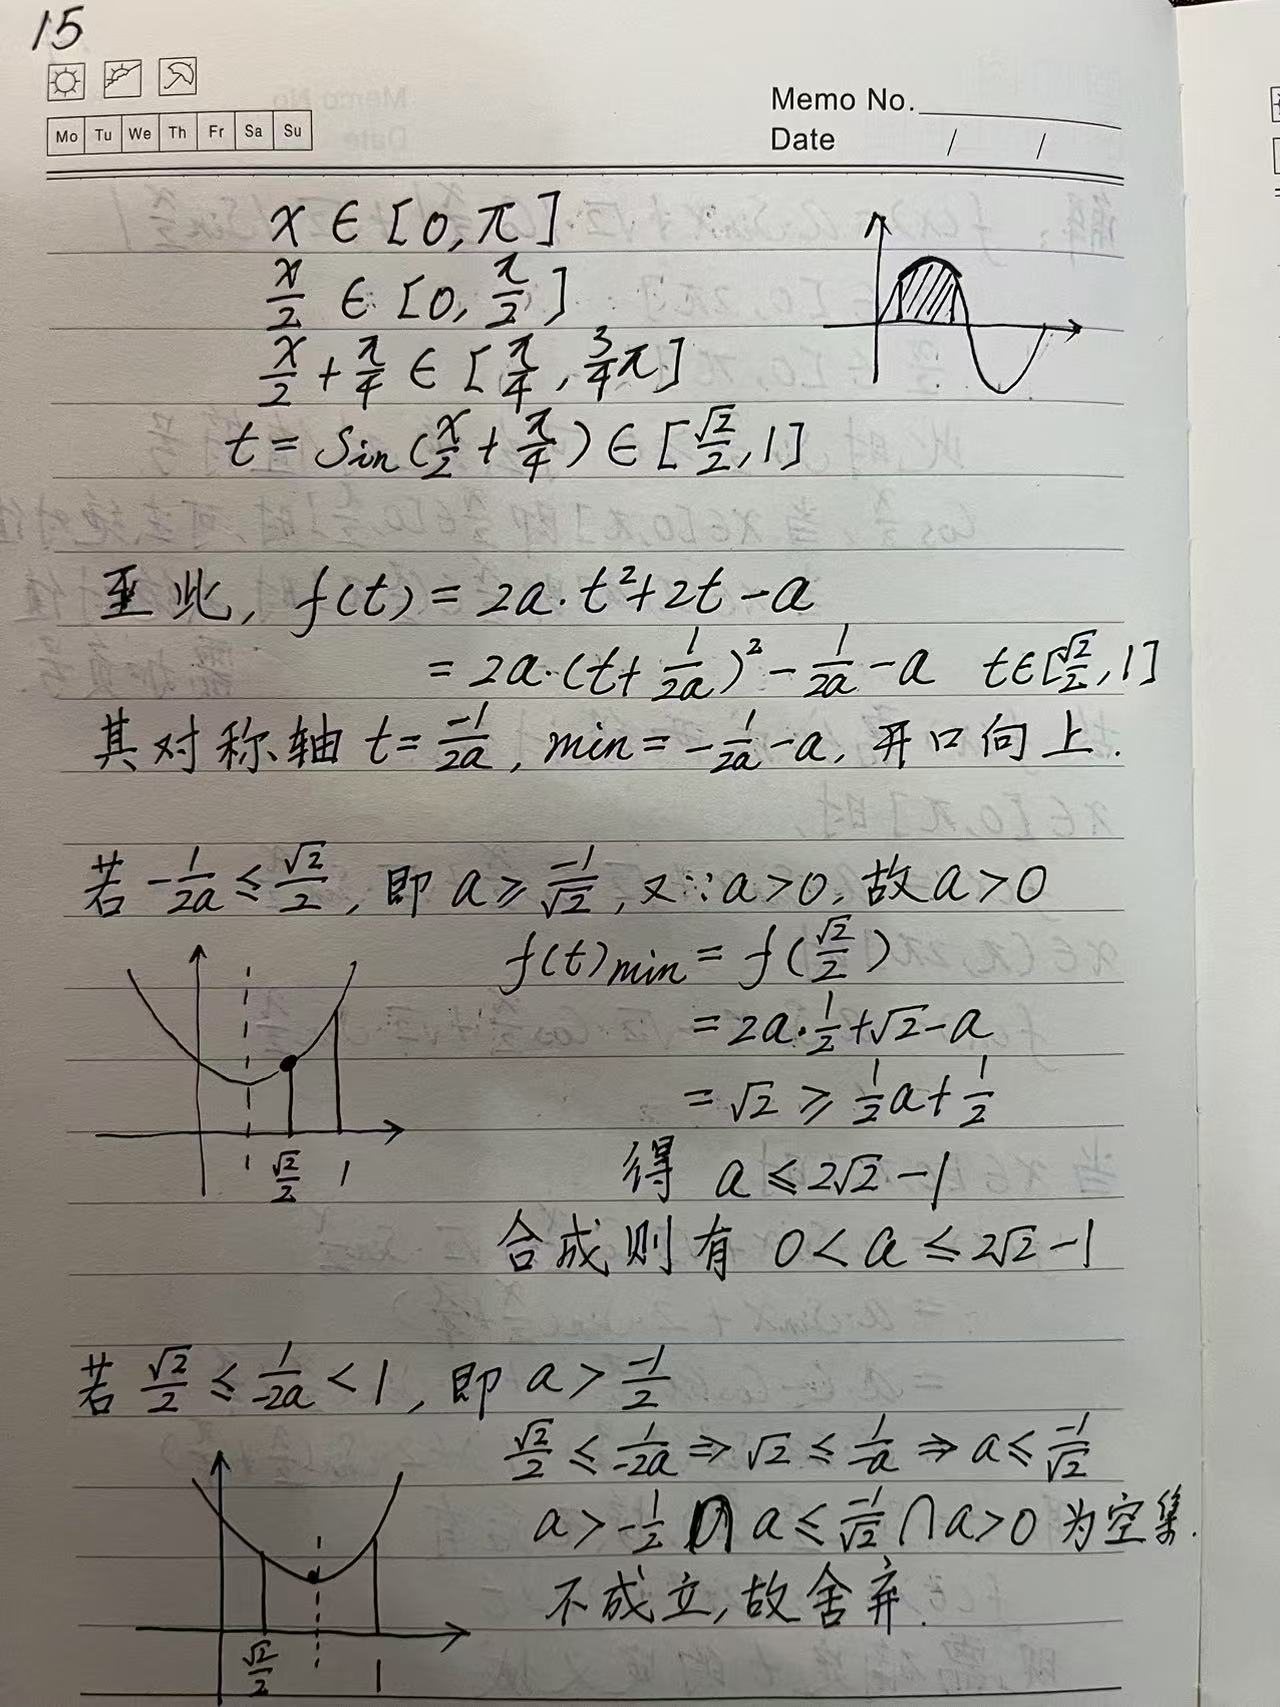 15
Mo Tu We Th Fr Sa Su
Memo No.
Date / /
x ∈ [0, π]
x/2 ∈ [0, π/2]
x/2 + π/4 ∈ [π/4, 3/4π]
t = Sin(x/2 + π/4) ∈ [√2/2, 1]
至此, f(t) = 2a·t²+2t-a
= 2a·(t+1/2a)² - 1/2a - a t∈[√2/2, 1]
其对称轴 t=-1/2a, min=-1/2a-a, 开口向上.
若 -1/2a ≤ √2/2, 即 a ≥ -1/√2, 又∵a>0, 故a>0
f(t)min = f(√2/2)
= 2a·1/2+√2-a
= √2 ≥ 1/2a+1/2
得 a ≤ 2√2-1
合成则有 0<a≤2√2-1
√2/2 1
若 √2/2 ≤ 1/-2a < 1, 即 a > -1/2
√2/2 ≤ 1/-2a ⇒ √2 ≤ 1/-a ⇒ a ≤ -1/√2
a>-1/2 ∩ a≤-1/√2 ∩ a>0 为空集.
不成立, 故舍弃.
√2/2 1